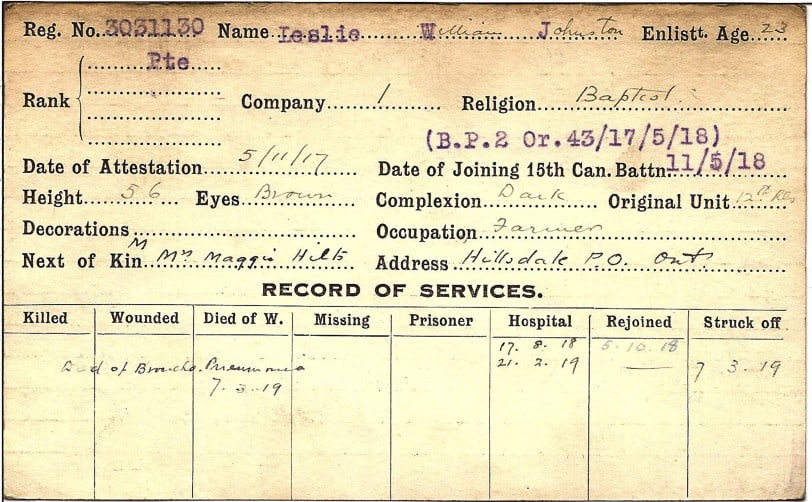 Reg. No. 3031130 Name Leslie William Johnston Enlistt. Age 23
Pte
Rank Company 1 Religion Baptist.
(B.P.2 Or.43/17/5/18)
Date of Attestation 5/11/17 Date of Joining 15th Can. Battn. 11/5/18
Height 5 6 Eyes Brown Complexion Dark Original Unit 12th Res
Decorations Occupation Farmer
Next of Kin M Mrs Maggie Hilts Address Hillsdale P.O. Ont.
RECORD OF SERVICES.
Killed Wounded Died of W. Missing Prisoner Hospital Rejoined Struck off
17. 8. 18 5. 10. 18
Died of Broncho. Pneumonia 21. 2. 19 7 3. 19
7. 3. 19